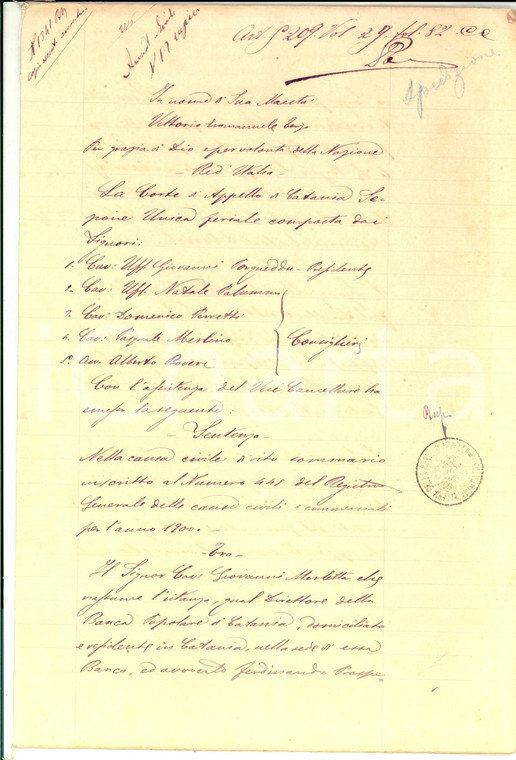 Art. § 209. Vol. 29 fol. 82.
Spedizione
In nome di Sua Maestà
Vittorio Emmanuele Terzo
Per grazia di Dio e per volontà della Nazione
Re d'Italia
La Corte di Appello di Catania Se-
zione Unica feriale composta dai
Signori:
1. Cav: Uff. Giovanni Presidente
2. Cav: Uff. Natale Palummo
3. Cav: Domenico Perretti
4. Cav: Pasquale Merlino
5. Avv. Alberto Boveri
Consiglieri
Con l'assistenza del Vice Cancelliere ha
emesso la seguente:
Sentenza
Nella causa civile di rito sommario
inscritto al Numero 441 del Registro
Generale delle cause civili e commerciali
per l'anno 1900.
Tra
Il Signor Cav: Giovanni Marletta che
riassume l'istanza, qual Direttore della
Banca Popolare di Catania, domiciliato
e residente in Catania, nella sede di essa
Banca, ed avvocato Ferdinando Prospe-